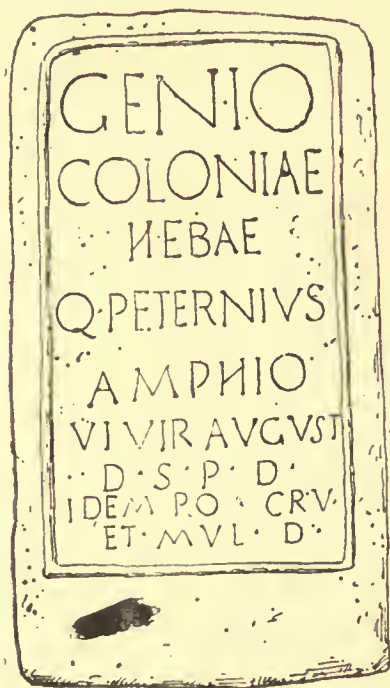 GENIO
COLONIAE
HEBAE
Q·PETERNIVS
AMPHIO
VI VIR AVGVST
D·S·P·D·
IDEM P·O· CRV·
ET·MVL·D·